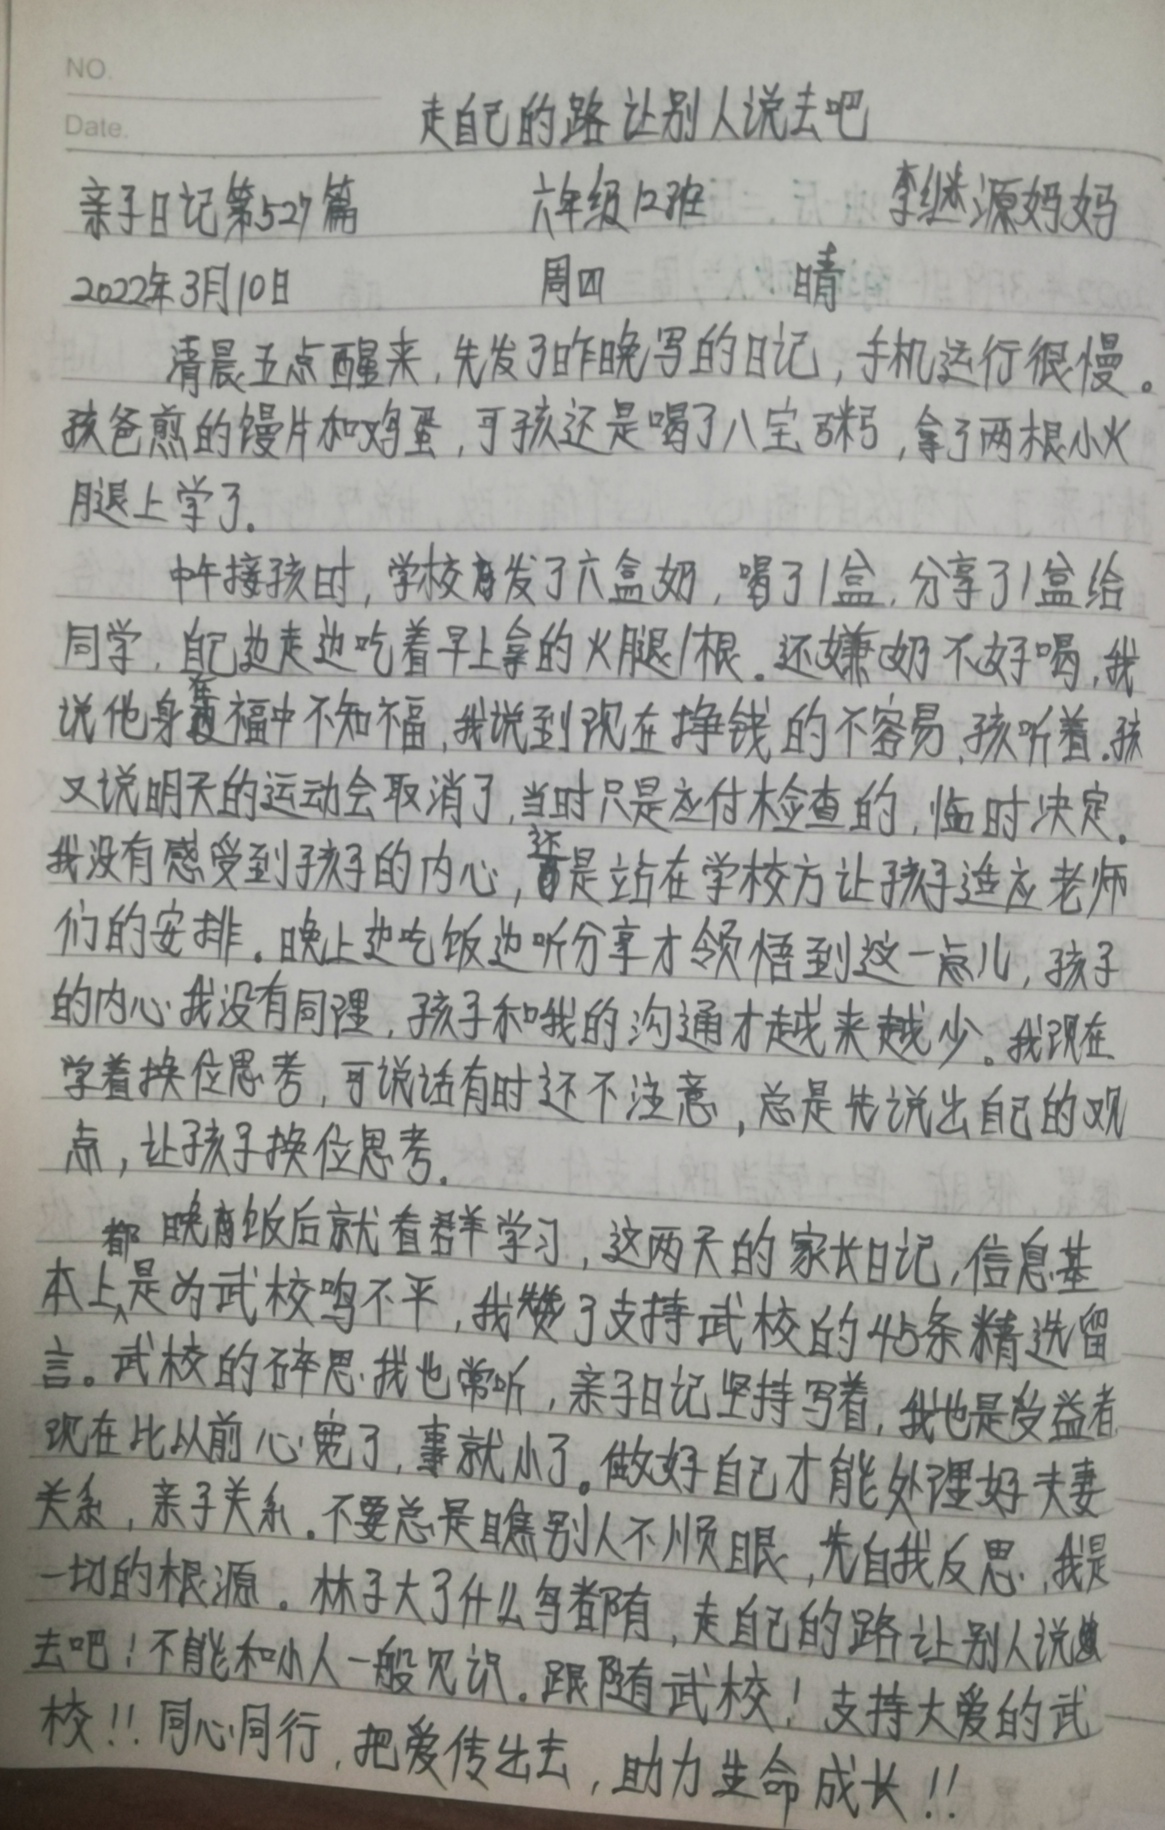 NO.
走自己的路让别人说去吧
Date.
亲子日记第527篇 六年级12班 李继源妈妈
2022年3月10日 周四 晴
清晨五点醒来,先发了昨晚写的日记,手机运行很慢。
孩爸煎的馒片和鸡蛋,可孩还是喝了八宝粥,拿了两根小火
腿上学了.
中午接孩时,学校发了六盒奶,喝了1盒.分享了1盒给
同学,自己边走边吃着早上拿的火腿1根。还嫌奶不好喝,我
说他身在福中不知福,我说到现在挣钱的不容易,孩听着.孩
又说明天的运动会取消了,当时只是应付检查的,临时决定。
我没有感受到孩子的内心,还是站在学校方让孩子适应老师
们的安排。晚上边吃饭边听分享才领悟到这一点儿,孩子
的内心我没有同理,孩子和我的沟通才越来越少。我现在
学着换位思考,可说话有时还不注意,总是先说出自己的观
点,让孩子换位思考.
晚饭后就看群学习,这两天的家长日记,信息基
本上都是为武校鸣不平,我赞了支持武校的45条精选留
言。武校的碎思我也常听,亲子日记坚持写着,我也是受益者
现在比以前心宽了,事就小了。做好自己才能处理好夫妻
关系,亲子关系.不要总是瞧别人不顺眼,先自我反思,我是
一切的根源。林子大了什么鸟都有,走自己的路让别人说
去吧!不能和小人一般见识。跟随武校!支持大爱的武
校!!同心同行,把爱传出去,助力生命成长!!